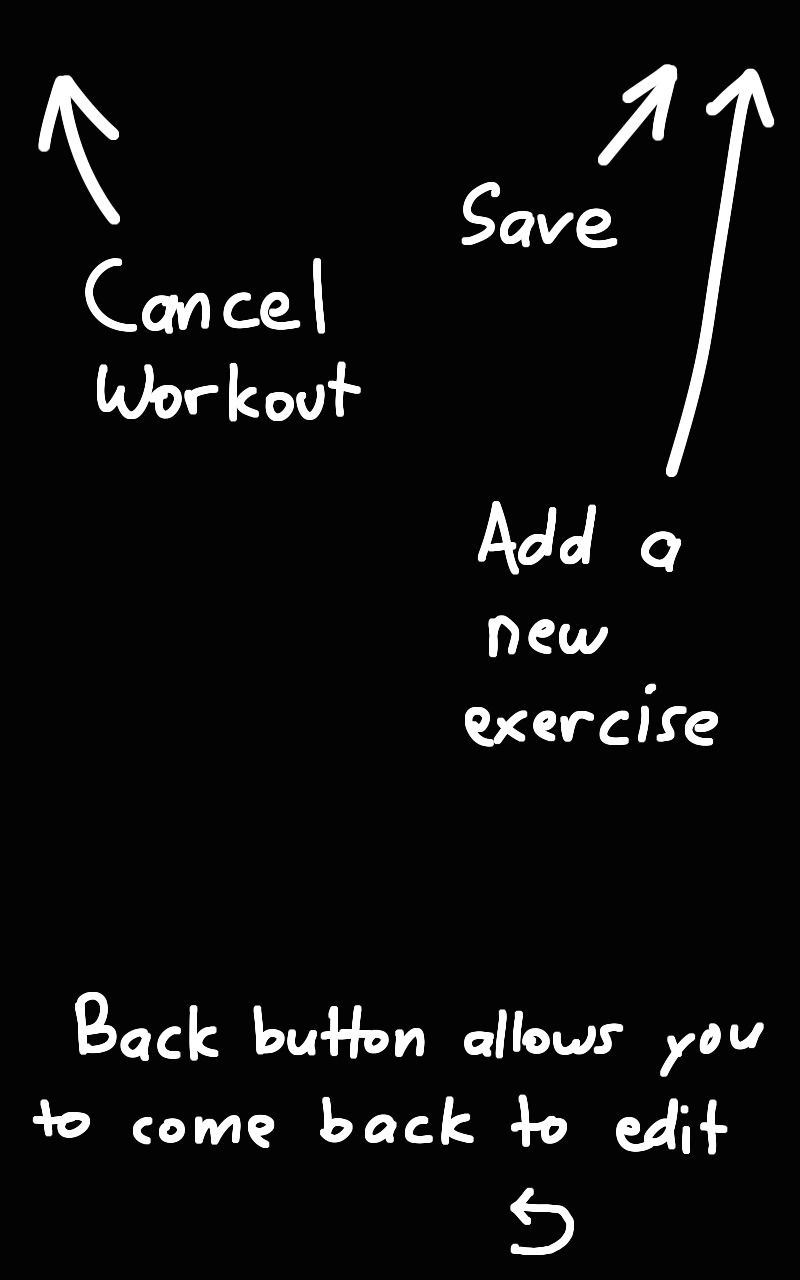 Save
Cancel
Workout
Add a
new
exercise
Back button allows you
to come back to edit